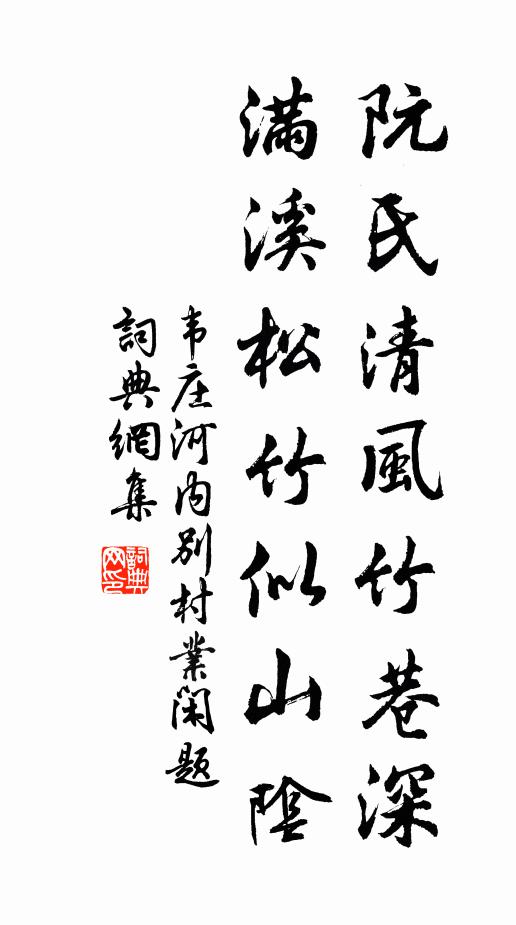 阮氏清風竹巷深
滿溪松竹似山陰
韦庄河内別村業閑題
詞典網集
詞典网印